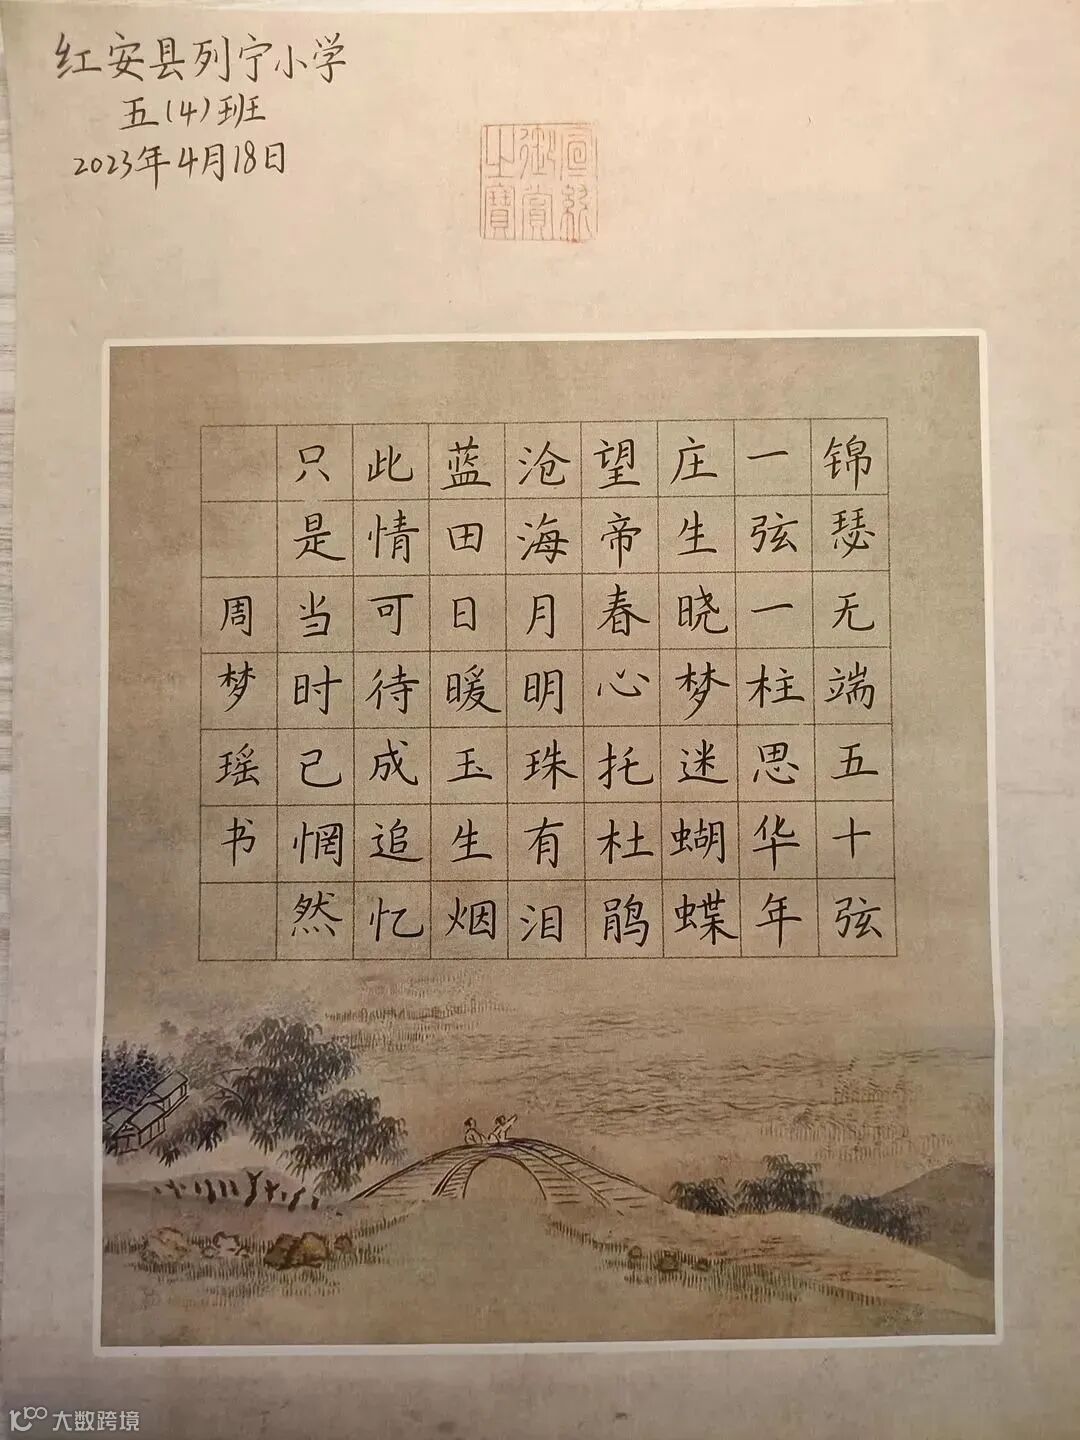 红安县列宁小学
五(4)班
2023年4月18日
宣统
御赏
之宝
锦瑟无端五十弦
一弦一柱思华年
庄生晓梦迷蝴蝶
望帝春心托杜鹃
沧海月明珠有泪
蓝田日暖玉生烟
此情可待成追忆
只是当时已惘然
周梦瑶书
大数跨境